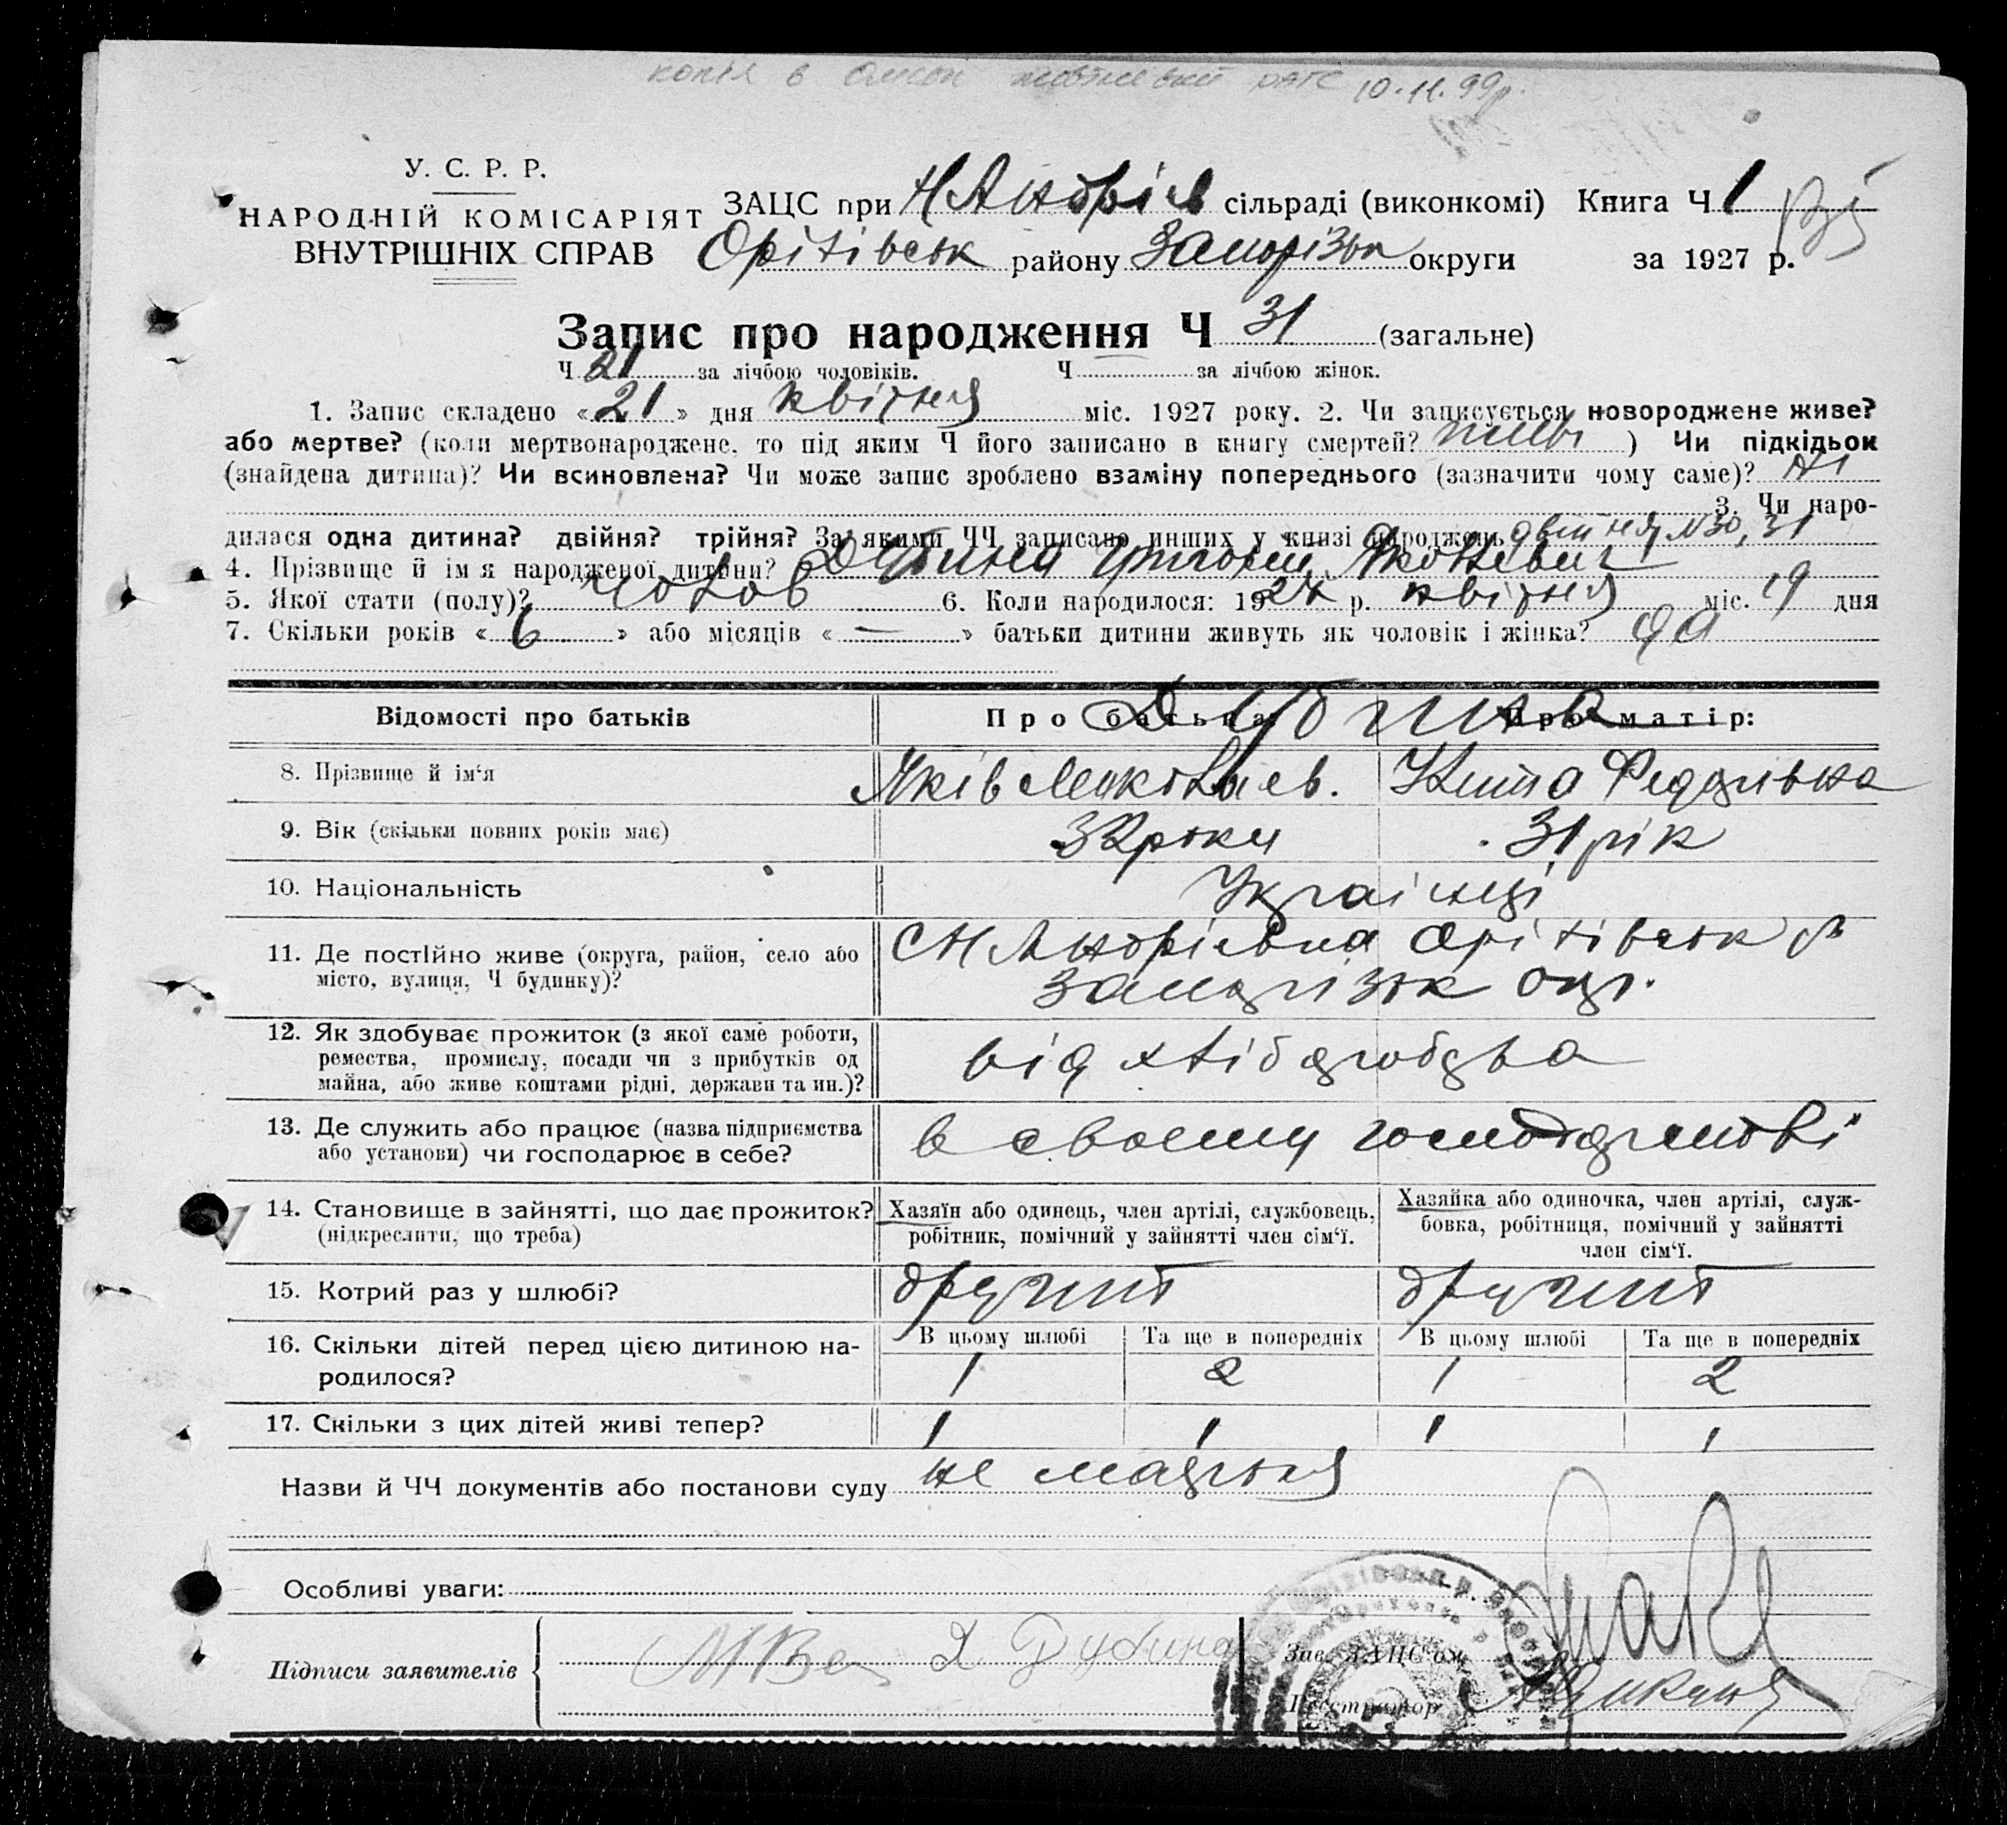 копія в 10.11.99р.
У. С. Р. Р.
НАРОДНІЙ КОМІСАРІЯТ
ВНУТРІШНІХ СПРАВ
ЗАЦС при Н Андрієв сільраді (виконкомі) Книга Ч 1
Оріхівськ району Запорізьк округи за 1927 р.
Запис про народження Ч 31 (загальне)
Ч 21 за лічбою чоловіків. Ч за лічбою жінок.
1. Запис складено «21» дня квітня міс. 1927 року. 2. Чи записується новороджене живе?
або мертве? (коли мертвонароджене, то під яким Ч його записано в книгу смертей? живе) Чи підкідьок
(знайдена дитина)? Чи всиновлена? Чи може запис зроблено взаміну попереднього (зазначити чому саме)? ні
3. Чи наро-
дилася одна дитина? двійня? трійня? За якими ЧЧ записано инших у книзі народжень двійня N 30, 31
4. Прізвище й ім'я народженої дитини? Дубина Григорій Яковлевич
5. Якої стати (полу)? чолов 6. Коли народилося: 1927 р. квітня міс. 19 дня
7. Скільки років «6» або місяців «—» батьки дитини живуть як чоловік і жінка? да
Відомості про батьків Про батька: Дубина Про матір:
8. Прізвище й ім‘я Яків Миколаєв. Федорівна
9. Вік (скільки повних років має) 32 роки 31 рік
10. Національність Українці
11. Де постійно живе (округа, район, село або
місто, вулиця, Ч будинку)?
С Н Андрієвка Оріхівськ р
Запорізьк окр.
12. Як здобуває прожиток (з якої саме роботи,
ремества, промислу, посади чи з прибутків од
майна, або живе коштами рідні, держави та ин.)?
від хлібороб
13. Де служить або працює (назва підприємства
або установи) чи господарює в себе?
в своєму господарстві
14. Становище в зайнятті, що дає прожиток?
(підкреслити, що треба)
Хазяїн або одинець, член артілі, службовець,
робітник, помічний у зайнятті член сім‘ї.
Хазяйка або одиночка, член артілі, служ-
бовка, робітниця, помічний у зайнятті
член сім‘ї.
15. Котрий раз у шлюбі? другий другий
16. Скільки дітей перед цією дитиною на-
родилося?
В цьому шлюбі Та ще в попередніх В цьому шлюбі Та ще в попередніх
1 2 1 2
17. Скільки з цих дітей живі тепер? 1 1 1 1
Назви й ЧЧ документів або постанови суду не
Особливі уваги:
Підписи заявителів Я Дубина
Зав. ЗАЦС'ом
Реєстратор